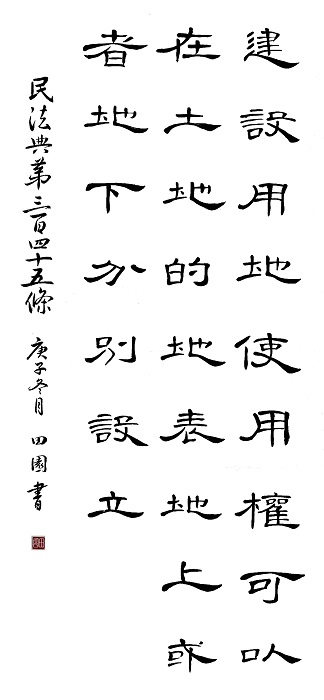 建設用地使用權可以
在土地的地表地上或
者地下分別設立
民法典第三百四十五條
庚子冬月 田園書